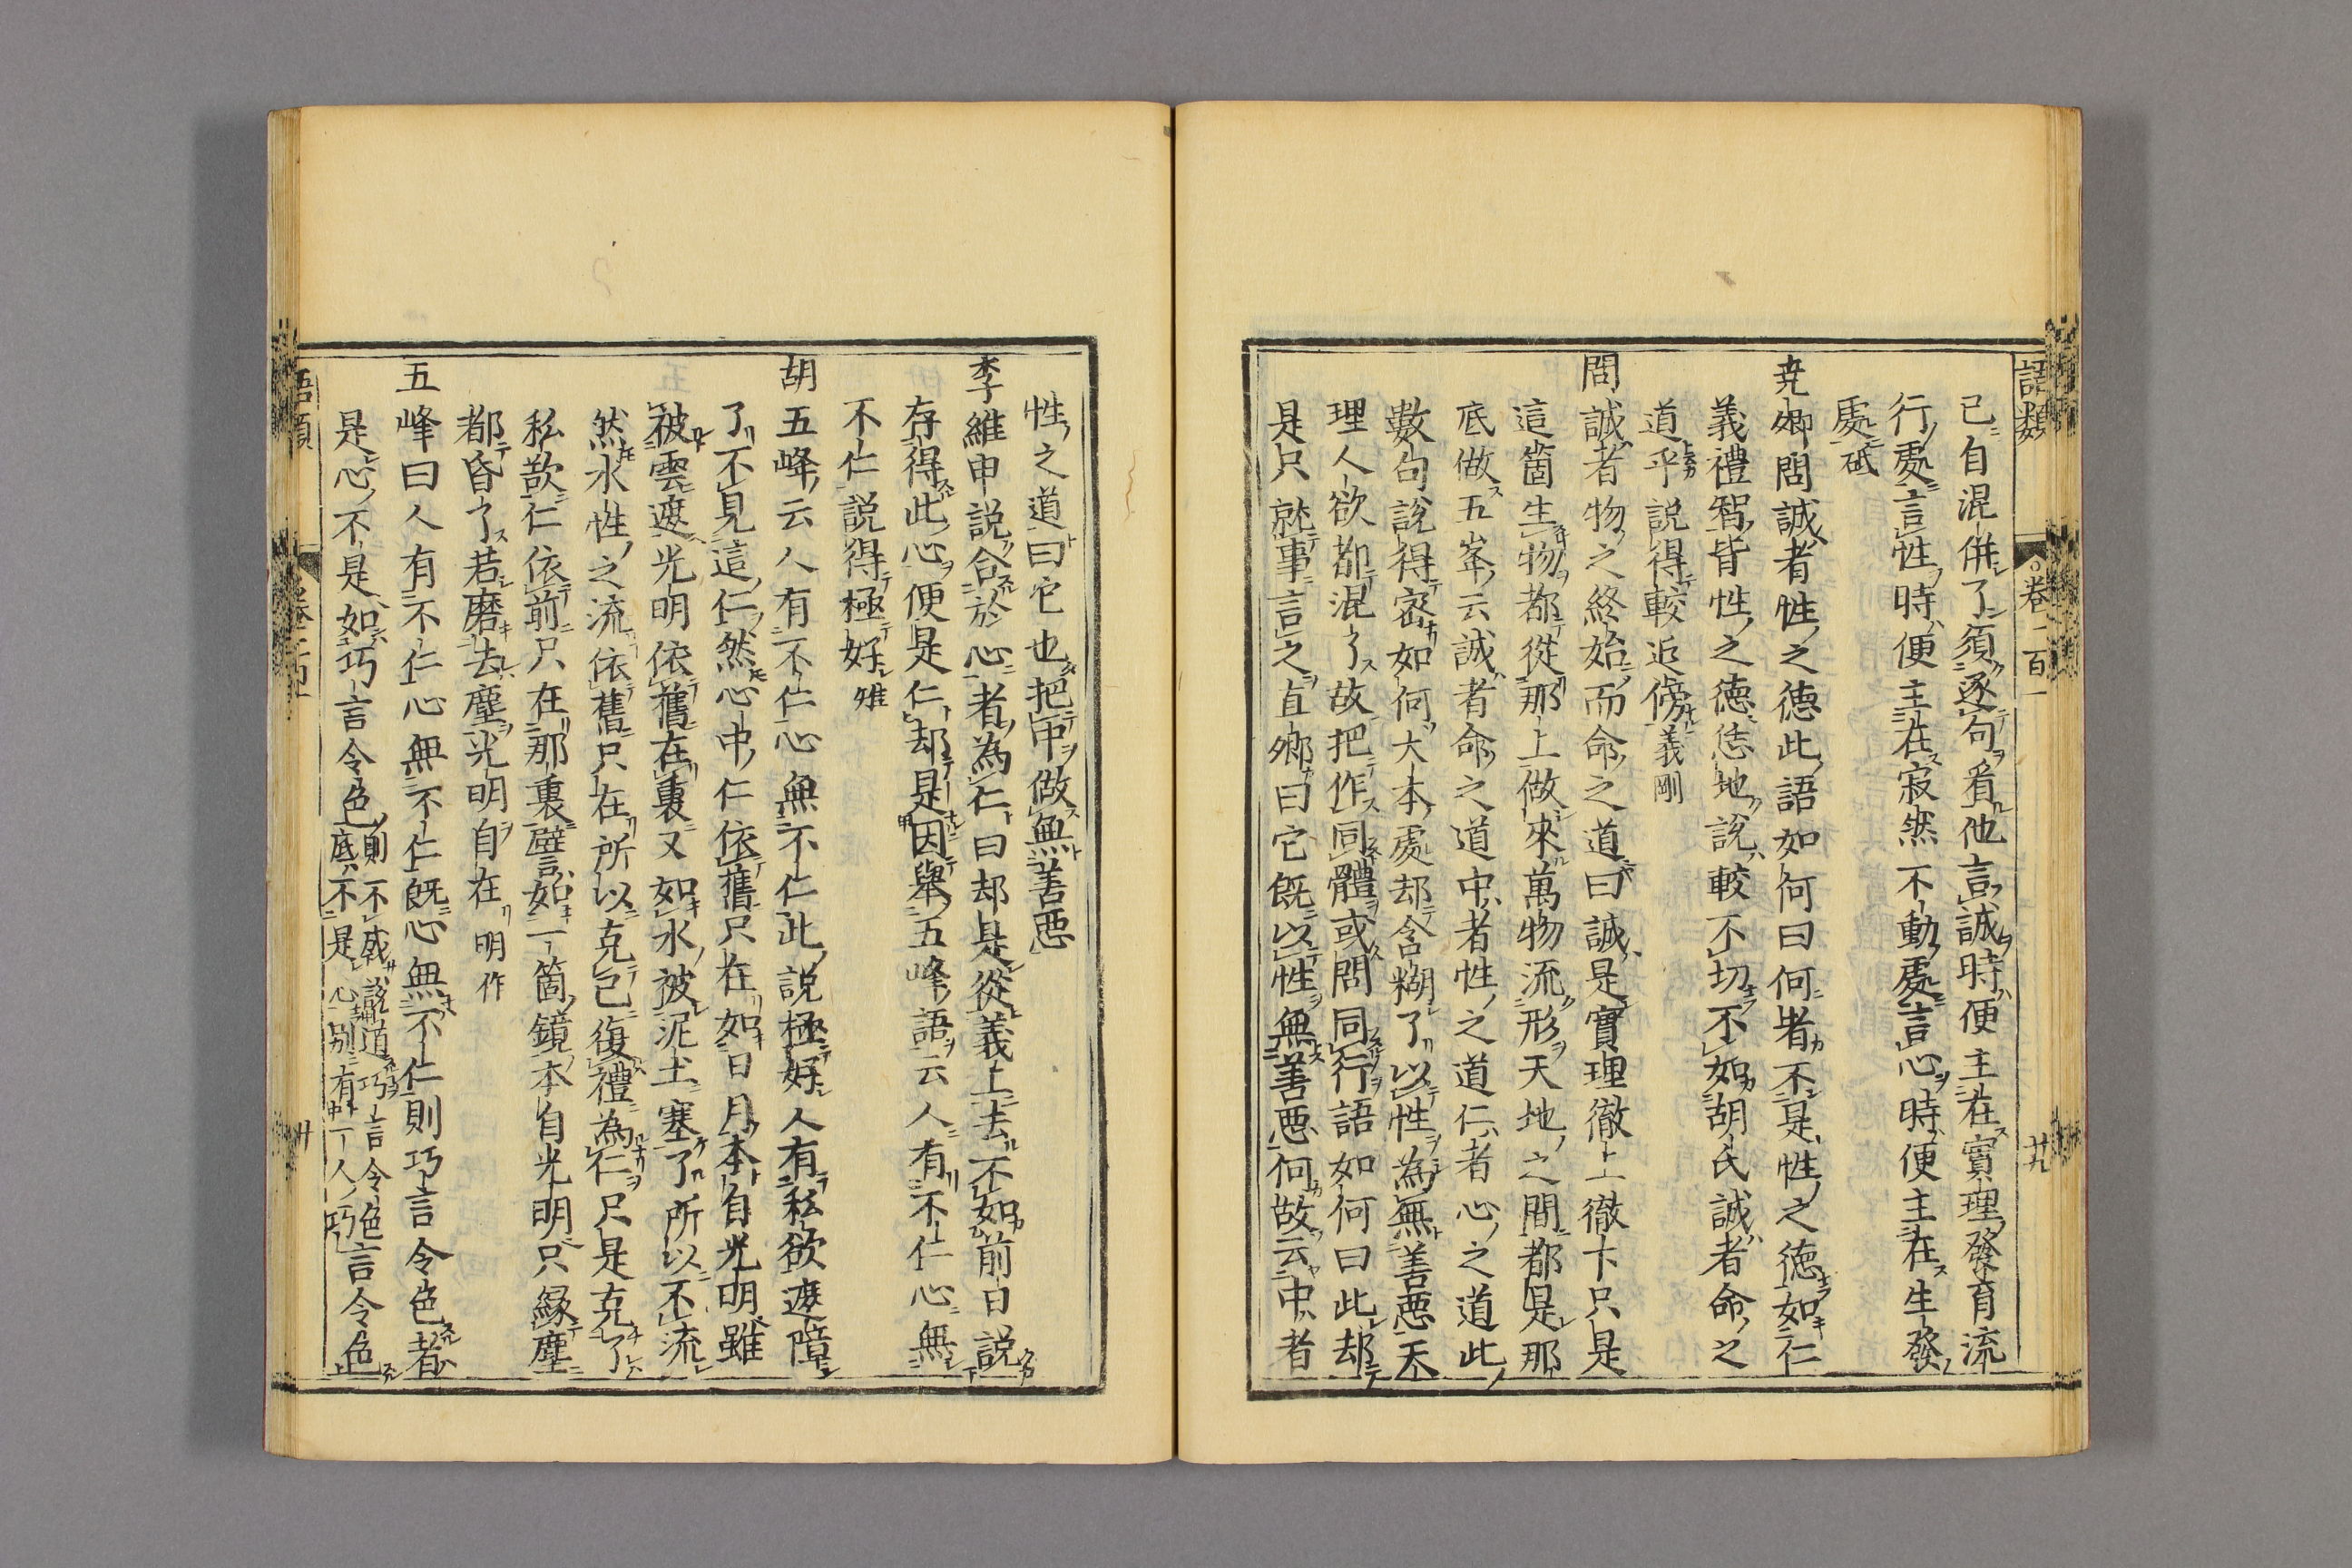 語類
卷一百一
廿九
已自混併了須逐句看他言誠時便主在實理發育流
行處言性時便主在寂然不動處言心時便主在生發
處砥
尭卿問誠者性之德此語如何曰何者不是性之德如仁
義禮智皆性之德恁地說較不切不如胡氏誠者命之
道乎說得較近傍義剛
問誠者物之終始而命之道曰誠是實理徹上徹下只是
這箇生物都從那上做來萬物流形天地之間都是那
底做五峯云誠者命之道中者性之道仁者心之道此
數句說得密如何大本處却含糊了以性為無善惡天
理人欲都混了故把作同體或問同行語如何曰此却
是只就事言之直卿曰它既以性無善惡何故云中者
性之道曰它也把中做無善惡
李維申說合於心者為仁曰却是從義上去不如前日説
存得此心便是仁却是因舉五峰語云人有不仁心無
不仁説得極好雉
胡五峰云人有不仁心無不仁此説極好人有私欲遮障
了不見這仁然心中仁依舊只在如日月本自光明雖
被雲遮光明依舊在裏又如水被泥土塞了所以不流
然水性之流依舊只在所以克己復禮為仁只是克了
私欲仁依前只在那裏譬如一箇鏡本自光明只緣塵
都昏了若磨去塵光明自在明作
五峰曰人有不仁心無不仁既心無不仁則巧言令色者
是心不是如巧言令色則不成說道巧言令色
底不是心別有一人巧言令色
語類